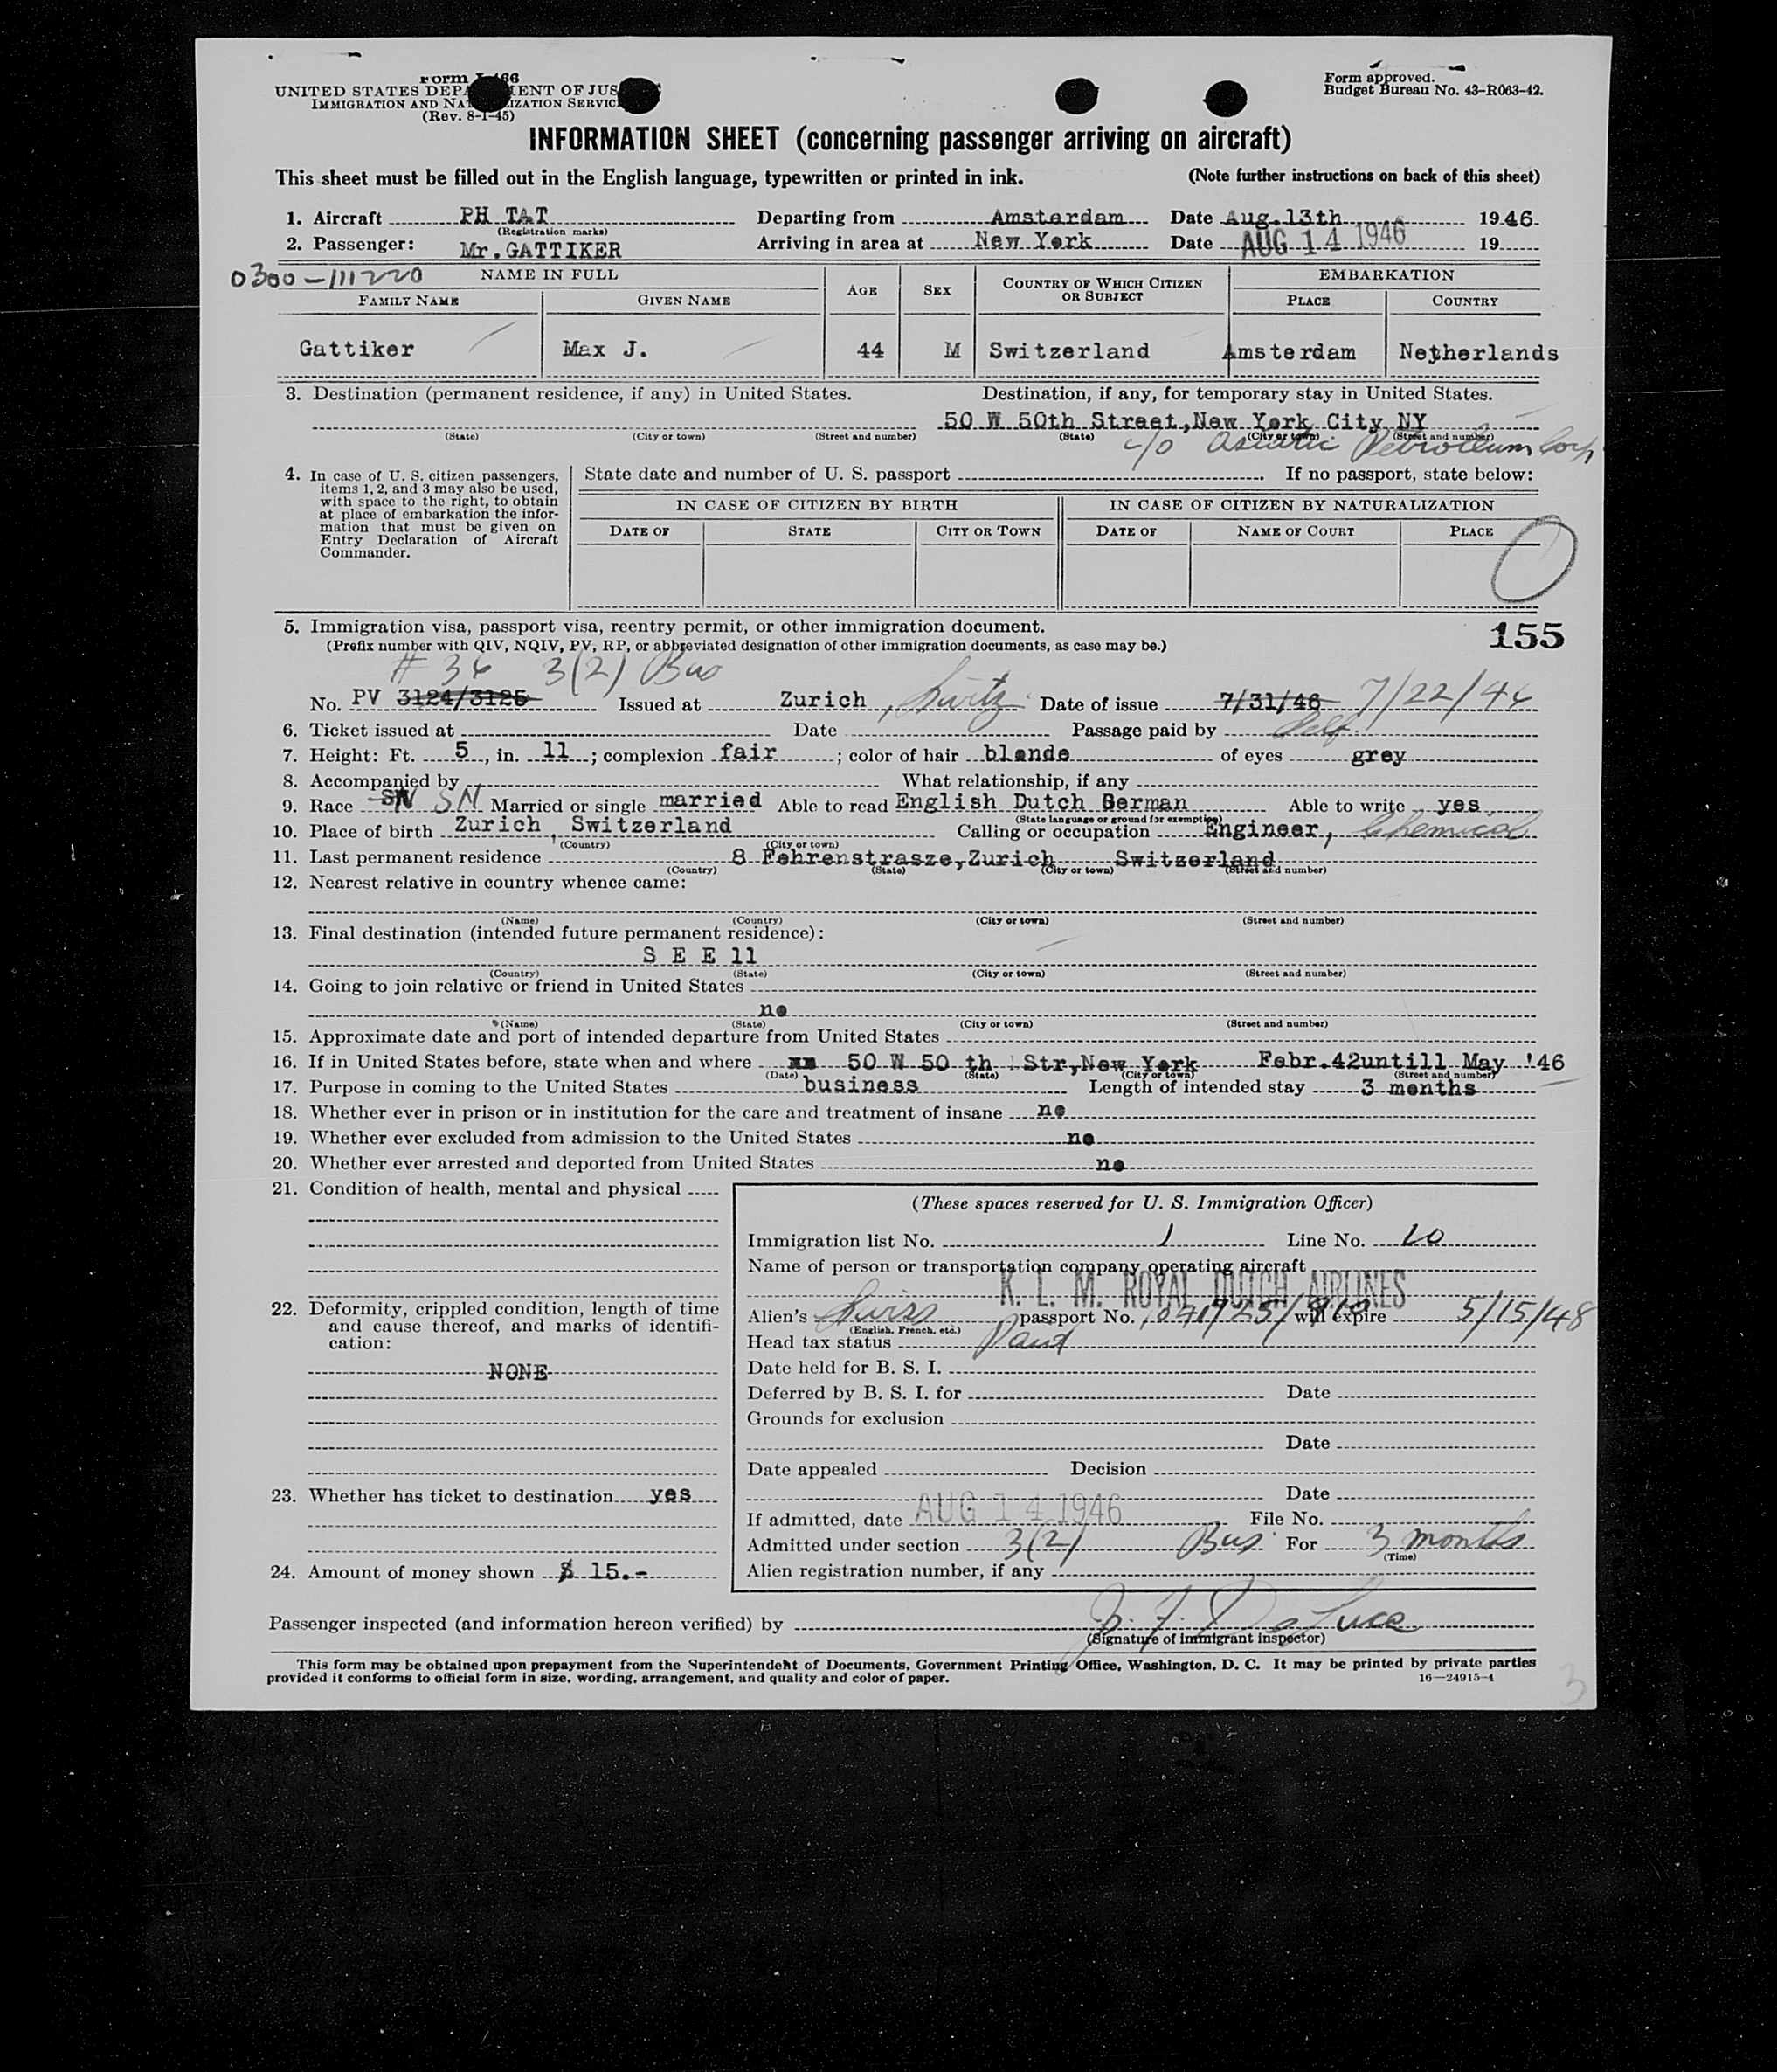 Form I-466
UNITED STATES DEPARTMENT OF JUSTICE
IMMIGRATION AND NATURALIZATION SERVICE
(Rev. 8-1-45)
Form approved.
Budget Bureau No. 43-R063-42.
INFORMATION SHEET (concerning passenger arriving on aircraft)
This sheet must be filled out in the English language, typewritten or printed in ink. (Note further instructions on back of this sheet)
1. Aircraft PH TAT Departing from Amsterdam Date Aug.13th 1946
(Registration marks)
2. Passenger: Mr.GATTIKER Arriving in area at New York Date AUG 14 1946 19
0300-111220 NAME IN FULL AGE SEX COUNTRY OF WHICH CITIZEN OR SUBJECT EMBARKATION
FAMILY NAME GIVEN NAME PLACE COUNTRY
Gattiker Max J. 44 M Switzerland Amsterdam Netherlands
3. Destination (permanent residence, if any) in United States. Destination, if any, for temporary stay in United States.
50 W 50th Street,New York City NY
(State) (City or town) (Street and number) (State) (City or town) (Street and number)
c/o Asiatic Petroleum Corp
4. In case of U. S. citizen passengers, items 1, 2, and 3 may also be used, with space to the right, to obtain at place of embarkation the information that must be given on Entry Declaration of Aircraft Commander.
State date and number of U. S. passport If no passport, state below:
IN CASE OF CITIZEN BY BIRTH IN CASE OF CITIZEN BY NATURALIZATION
DATE OF STATE CITY OR TOWN DATE OF NAME OF COURT PLACE
5. Immigration visa, passport visa, reentry permit, or other immigration document. 155
(Prefix number with QIV, NQIV, PV, RP, or abbreviated designation of other immigration documents, as case may be.)
# 36 3(2) Bus
No. PV 3124/3125 Issued at Zurich, Switz Date of issue 7/31/46 7/22/46
6. Ticket issued at Date Passage paid by Self
7. Height: Ft. 5, in. 11; complexion fair; color of hair blonde of eyes grey
8. Accompanied by What relationship, if any
9. Race SN SN Married or single married Able to read English Dutch German Able to write yes
(State language or ground for exemption)
10. Place of birth Zurich, Switzerland Calling or occupation Engineer, Chemical
(Country) (City or town)
11. Last permanent residence 8 Fehrenstrasze,Zurich Switzerland
(Country) (State) (City or town) (Street and number)
12. Nearest relative in country whence came:
(Name) (Country) (City or town) (Street and number)
13. Final destination (intended future permanent residence):
S E E 11
(Country) (State) (City or town) (Street and number)
14. Going to join relative or friend in United States
no
(Name) (State) (City or town) (Street and number)
15. Approximate date and port of intended departure from United States
16. If in United States before, state when and where 50 W 50 th Str,New York Febr.42untill May '46
(Date) (State) (City or town) (Street and number)
17. Purpose in coming to the United States business Length of intended stay 3 months
18. Whether ever in prison or in institution for the care and treatment of insane no
19. Whether ever excluded from admission to the United States no
20. Whether ever arrested and deported from United States no
21. Condition of health, mental and physical
22. Deformity, crippled condition, length of time and cause thereof, and marks of identification:
NONE
23. Whether has ticket to destination yes
24. Amount of money shown $ 15.-
(These spaces reserved for U. S. Immigration Officer)
Immigration list No. 1 Line No. 10
Name of person or transportation company operating aircraft
K. L. M. ROYAL DUTCH AIRLINES
Alien's Swiss passport No. will expire 5/15/48
(English, French, etc.)
Head tax status
Date held for B. S. I.
Deferred by B. S. I. for Date
Grounds for exclusion
Date
Date appealed Decision
Date
If admitted, date AUG 14 1946 File No.
Admitted under section 3(2) Bus For 3 months
(Time)
Alien registration number, if any
Passenger inspected (and information hereon verified) by De Luca
(Signature of immigrant inspector)
This form may be obtained upon prepayment from the Superintendent of Documents, Government Printing Office, Washington, D. C. It may be printed by private parties
provided it conforms to official form in size, wording, arrangement, and quality and color of paper. 16—24915-1
3